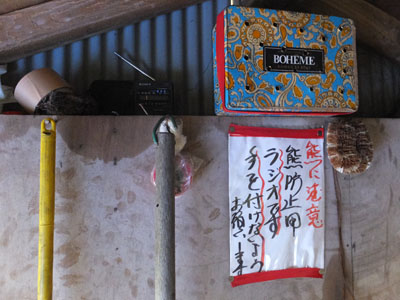 BOHEME
熊に注意
熊防止用
ラジオです
手を付けないよう
お願いします